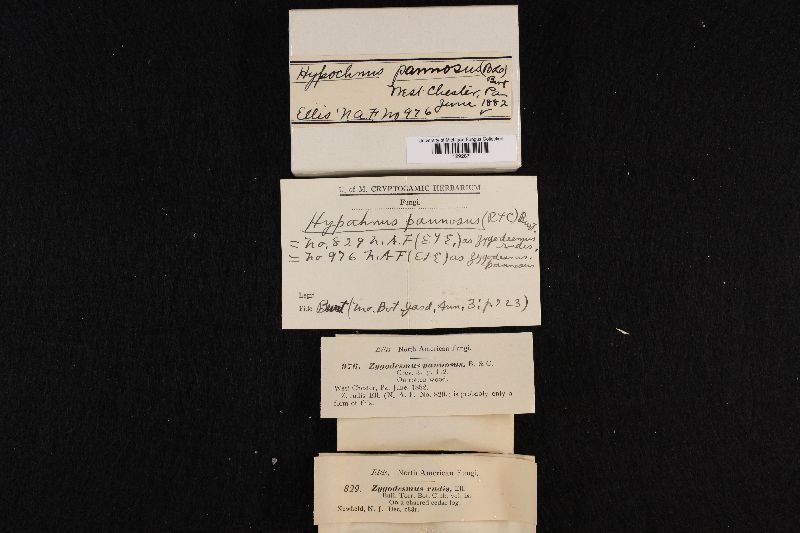 Hypochnus pannosus (B&C)
Burt
West Chester, Pa
June 1882
Ellis' N. A. F. No 976
University of Michigan Fungus Collection
U. of M. CRYPTOGAMIC HERBARIUM
Fungi.
Hypochnus pannosus (B&C) Burt.
= No. 829 N. A. F (E & E,) as Zygodesmus
rudis.
= No 976 N. A. F (E & E) as Zygodesmus
pannosus
Legit
Fide Burt (Mo. Bot. Gard, Ann, 3: p. 223)
Ellis, North American Fungi.
976. Zygodesmus pannosus, B. & C.
Grev. 3, p. 112.
On rotten wood.
West Chester, Pa. June, 1882.
Z. rudis Ell. (N. A. F. No. 829,) is probably only a
form of this.
Ellis, North American Fungi.
829. Zygodesmus rudis, Ell.
Bull. Torr. Bot. Club, vol. ix.
On a charred cedar log
Newfield, N. J. Dec. 1881.